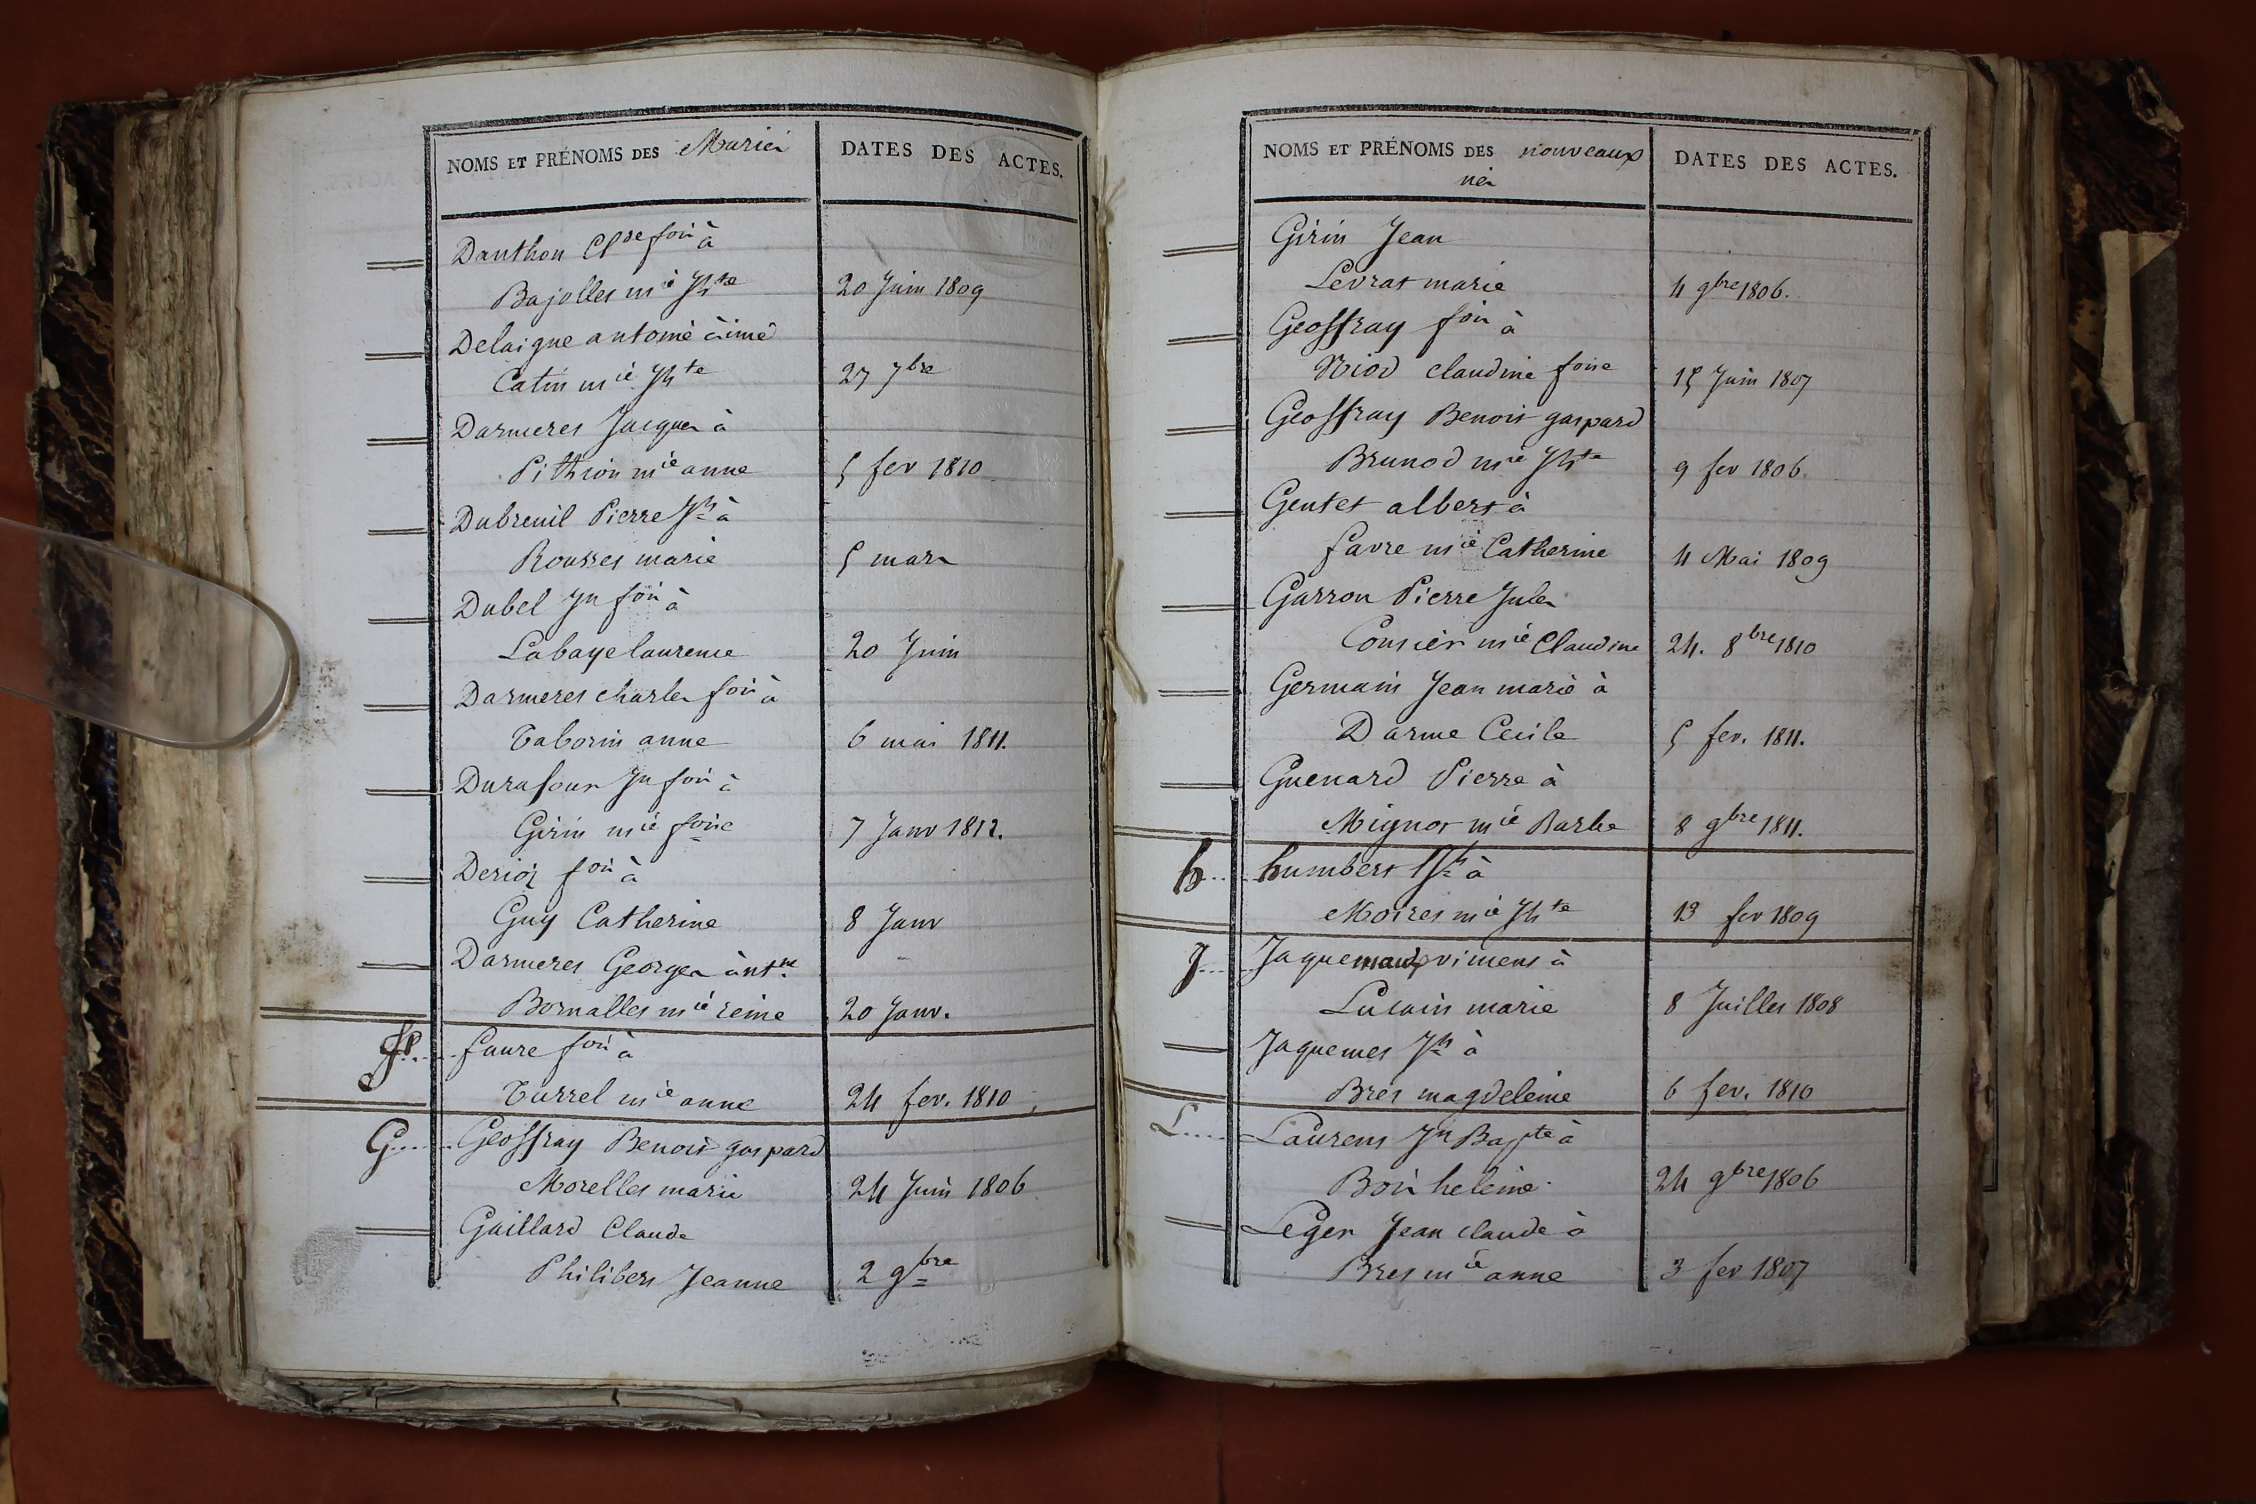 NOMS ET PRÉNOMS DES Mariés DATES DES ACTES.
Danthon Cl de foiˢ à
Bajolles mie Jhte 20 Juin 1809
Delaigne antoine aimé
Catin mie Jhte 27 7bre
Darmeres Jacques à
Pithion mie anne 5 fev 1810
Dubreuil Pierre Jh à
Rousses marie 5 mars
Dubel Jn fois à
Labaye laurence 20 Juin
Darmeres charles fois à
Taborin anne 6 mai 1811.
Durafour Jn fois à
Girin mie foise 7 Janv 1812.
Derioz fois à
Guy Catherine 8 Janv
Darmeres Georges à
Bornalles mie reine 20 Janv.
F.... faure fois à
Turrel mie anne 24 fev. 1810
G..... Geoffray Benoit gaspard
Morelles marie 24 Juin 1806
Gaillard Claude
Philibers Jeanne 2 9bre
NOMS ET PRÉNOMS DES nouveaux DATES DES ACTES.
nés
Girin Jean
Levrat marie 4 9bre 1806.
Geoffray fois à
Niod claudine foise 15 Juin 1807
Geoffray Benoit gaspard
Brunod mie Jhte 9 fev 1806.
Gentet albert à
favre mie Catherine 4 Mai 1809
Garron Pierre Jules
mie Claudine 24. 8bre 1810
Germain Jean marie à
Darme Cecile 5 fev. 1811.
Guenard Pierre à
Mignot mie Barbe 8 9bre 1811.
h.... humbert Jh à
Moires mie Jhte 13 fev 1809
J.... Jaquemaud vincens à
Luquin marie 8 Juilles 1808
Jaquemes Jh à
Bres magdeleine 6 fev. 1810
L.... Laurens Jn Bapte à
Bois heleine 24 9bre 1806
Leger Jean claude à
Bres mie anne 3 fev 1807